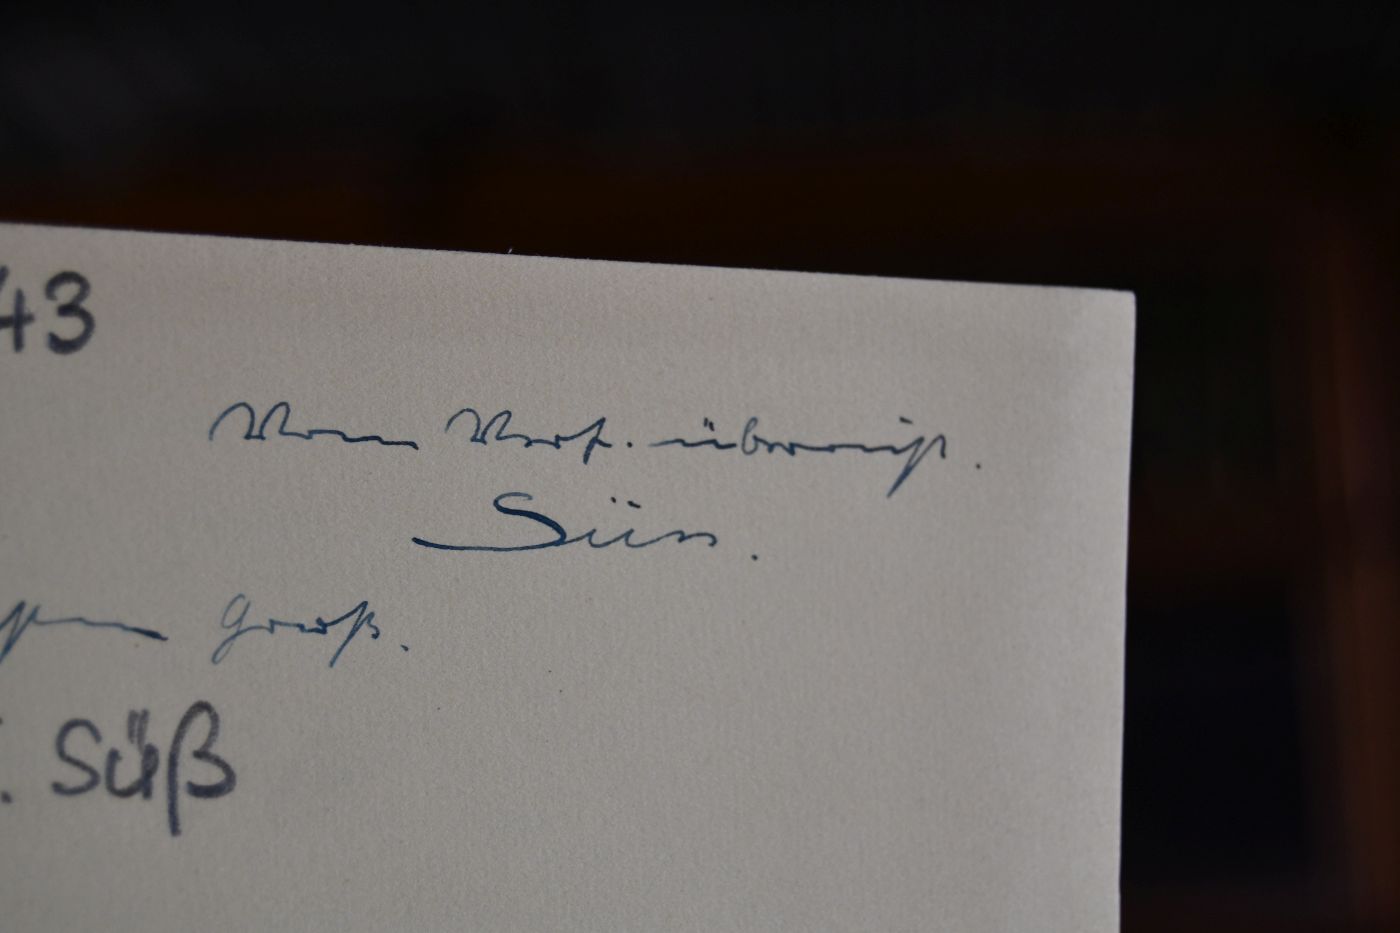 43
Vom Verf. überreicht.
Süss.
Gruß.
. Süß